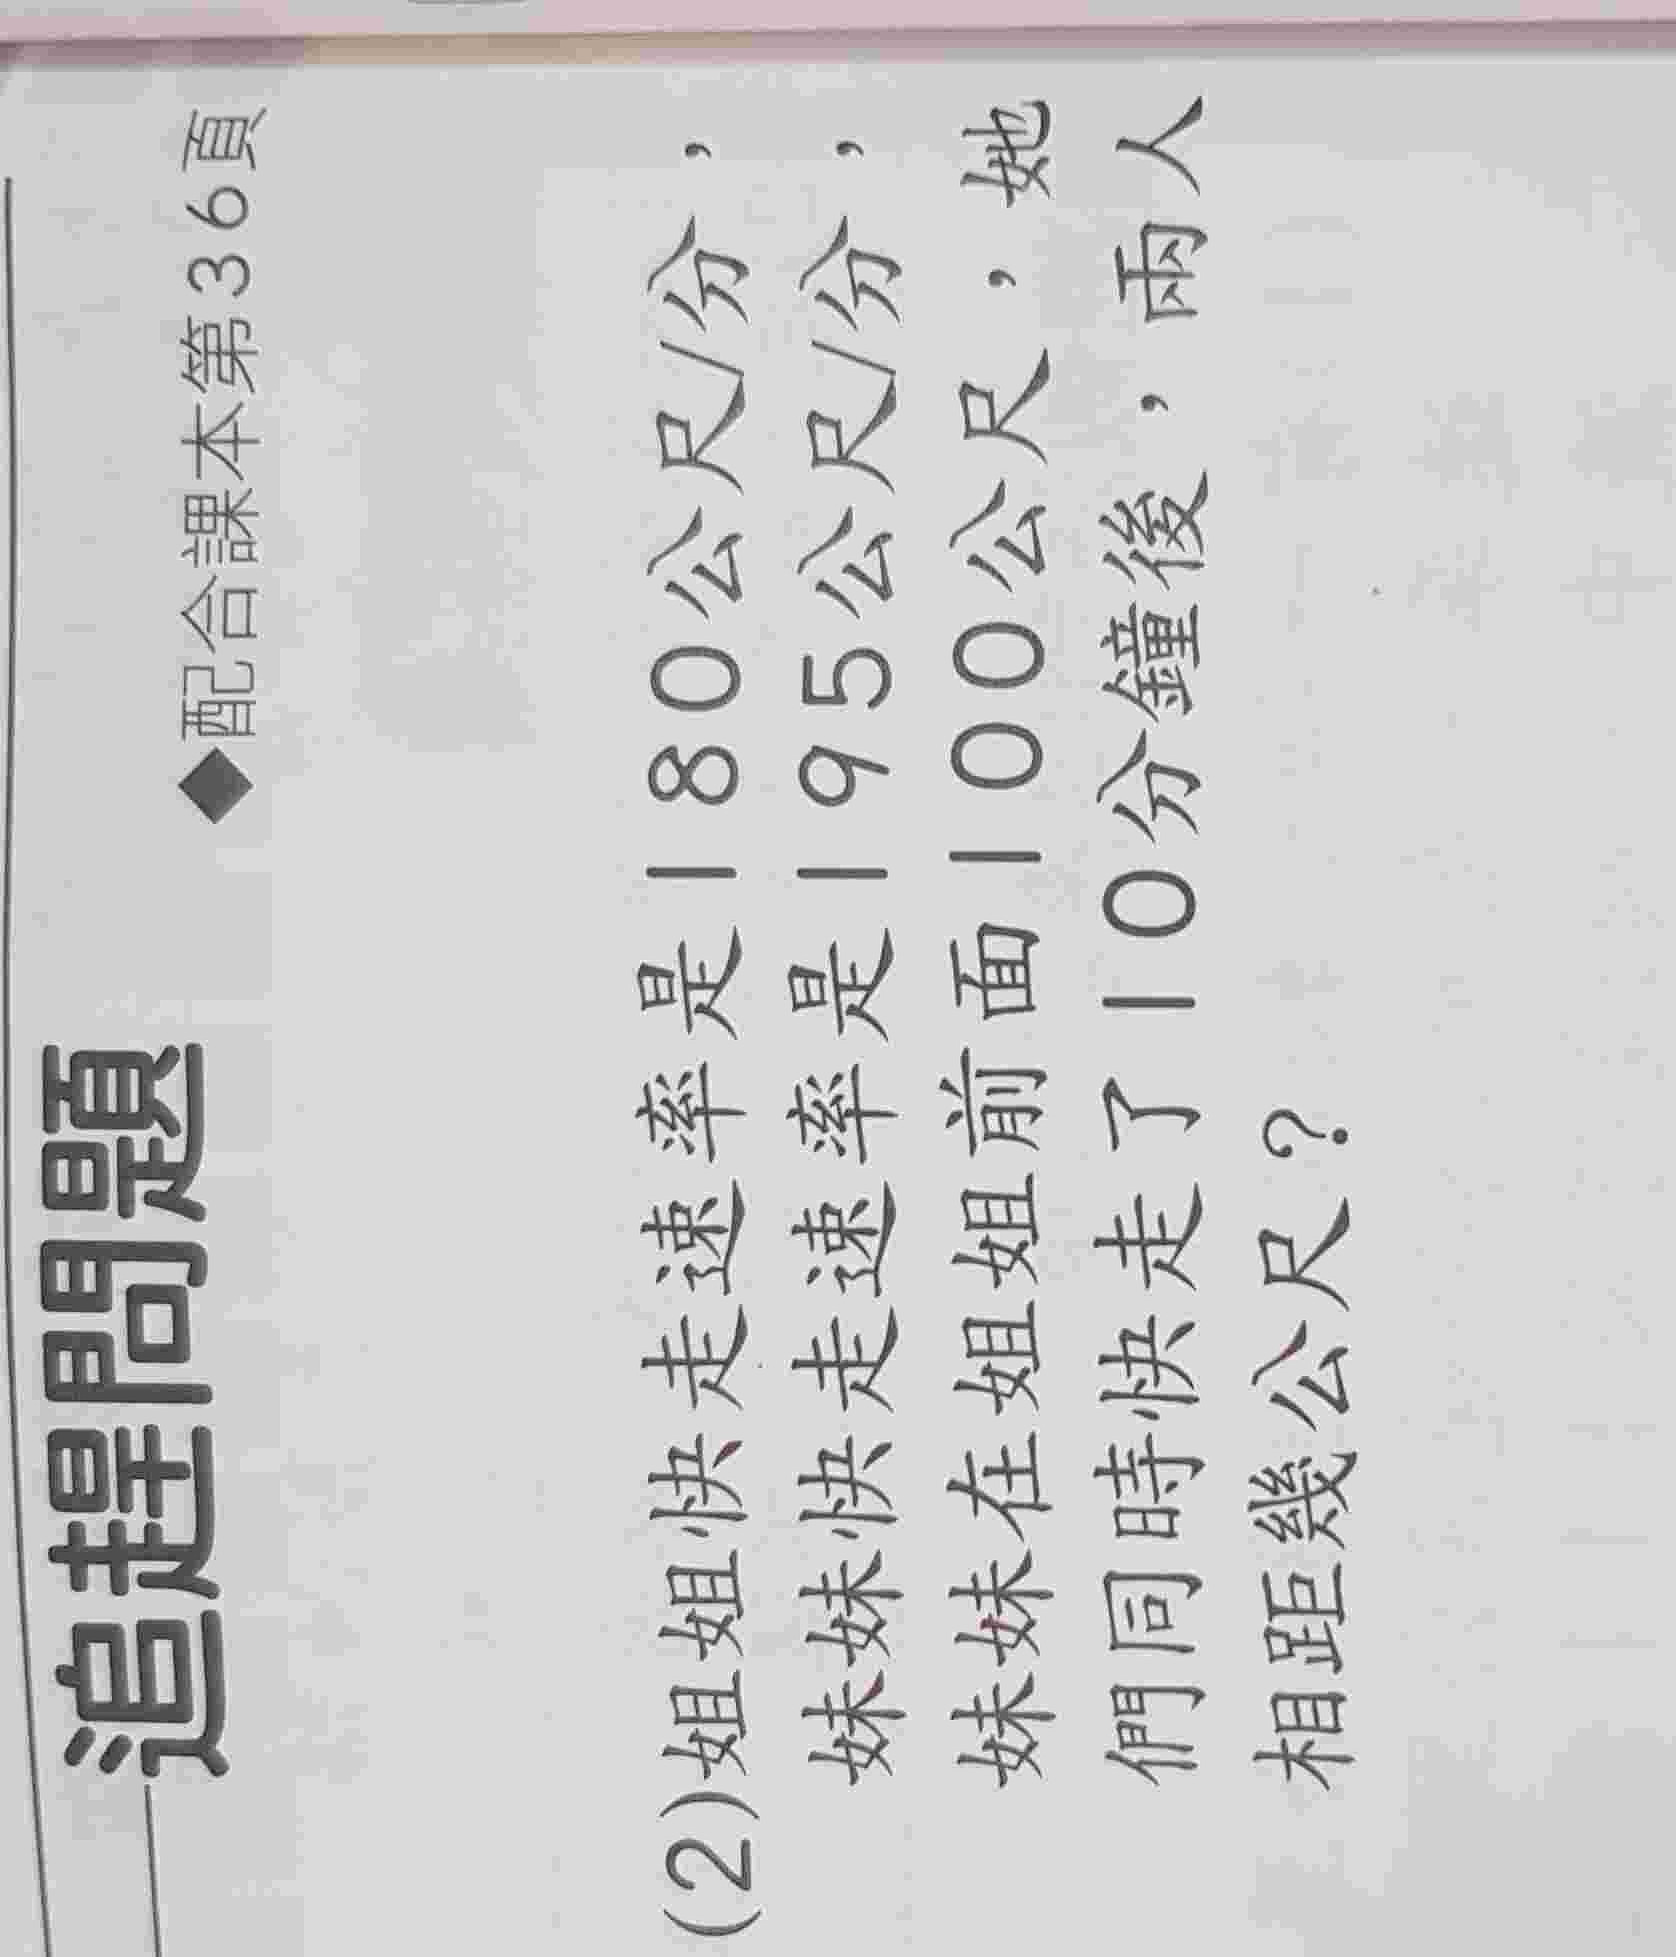 追趕問題
◆配合課本第36頁
(2)姐姐快走速率是180公尺/分，
妹妹快走速率是195公尺/分，
妹妹在姐姐前面100公尺，她
們同時快走了10分鐘後，兩人
相距幾公尺？